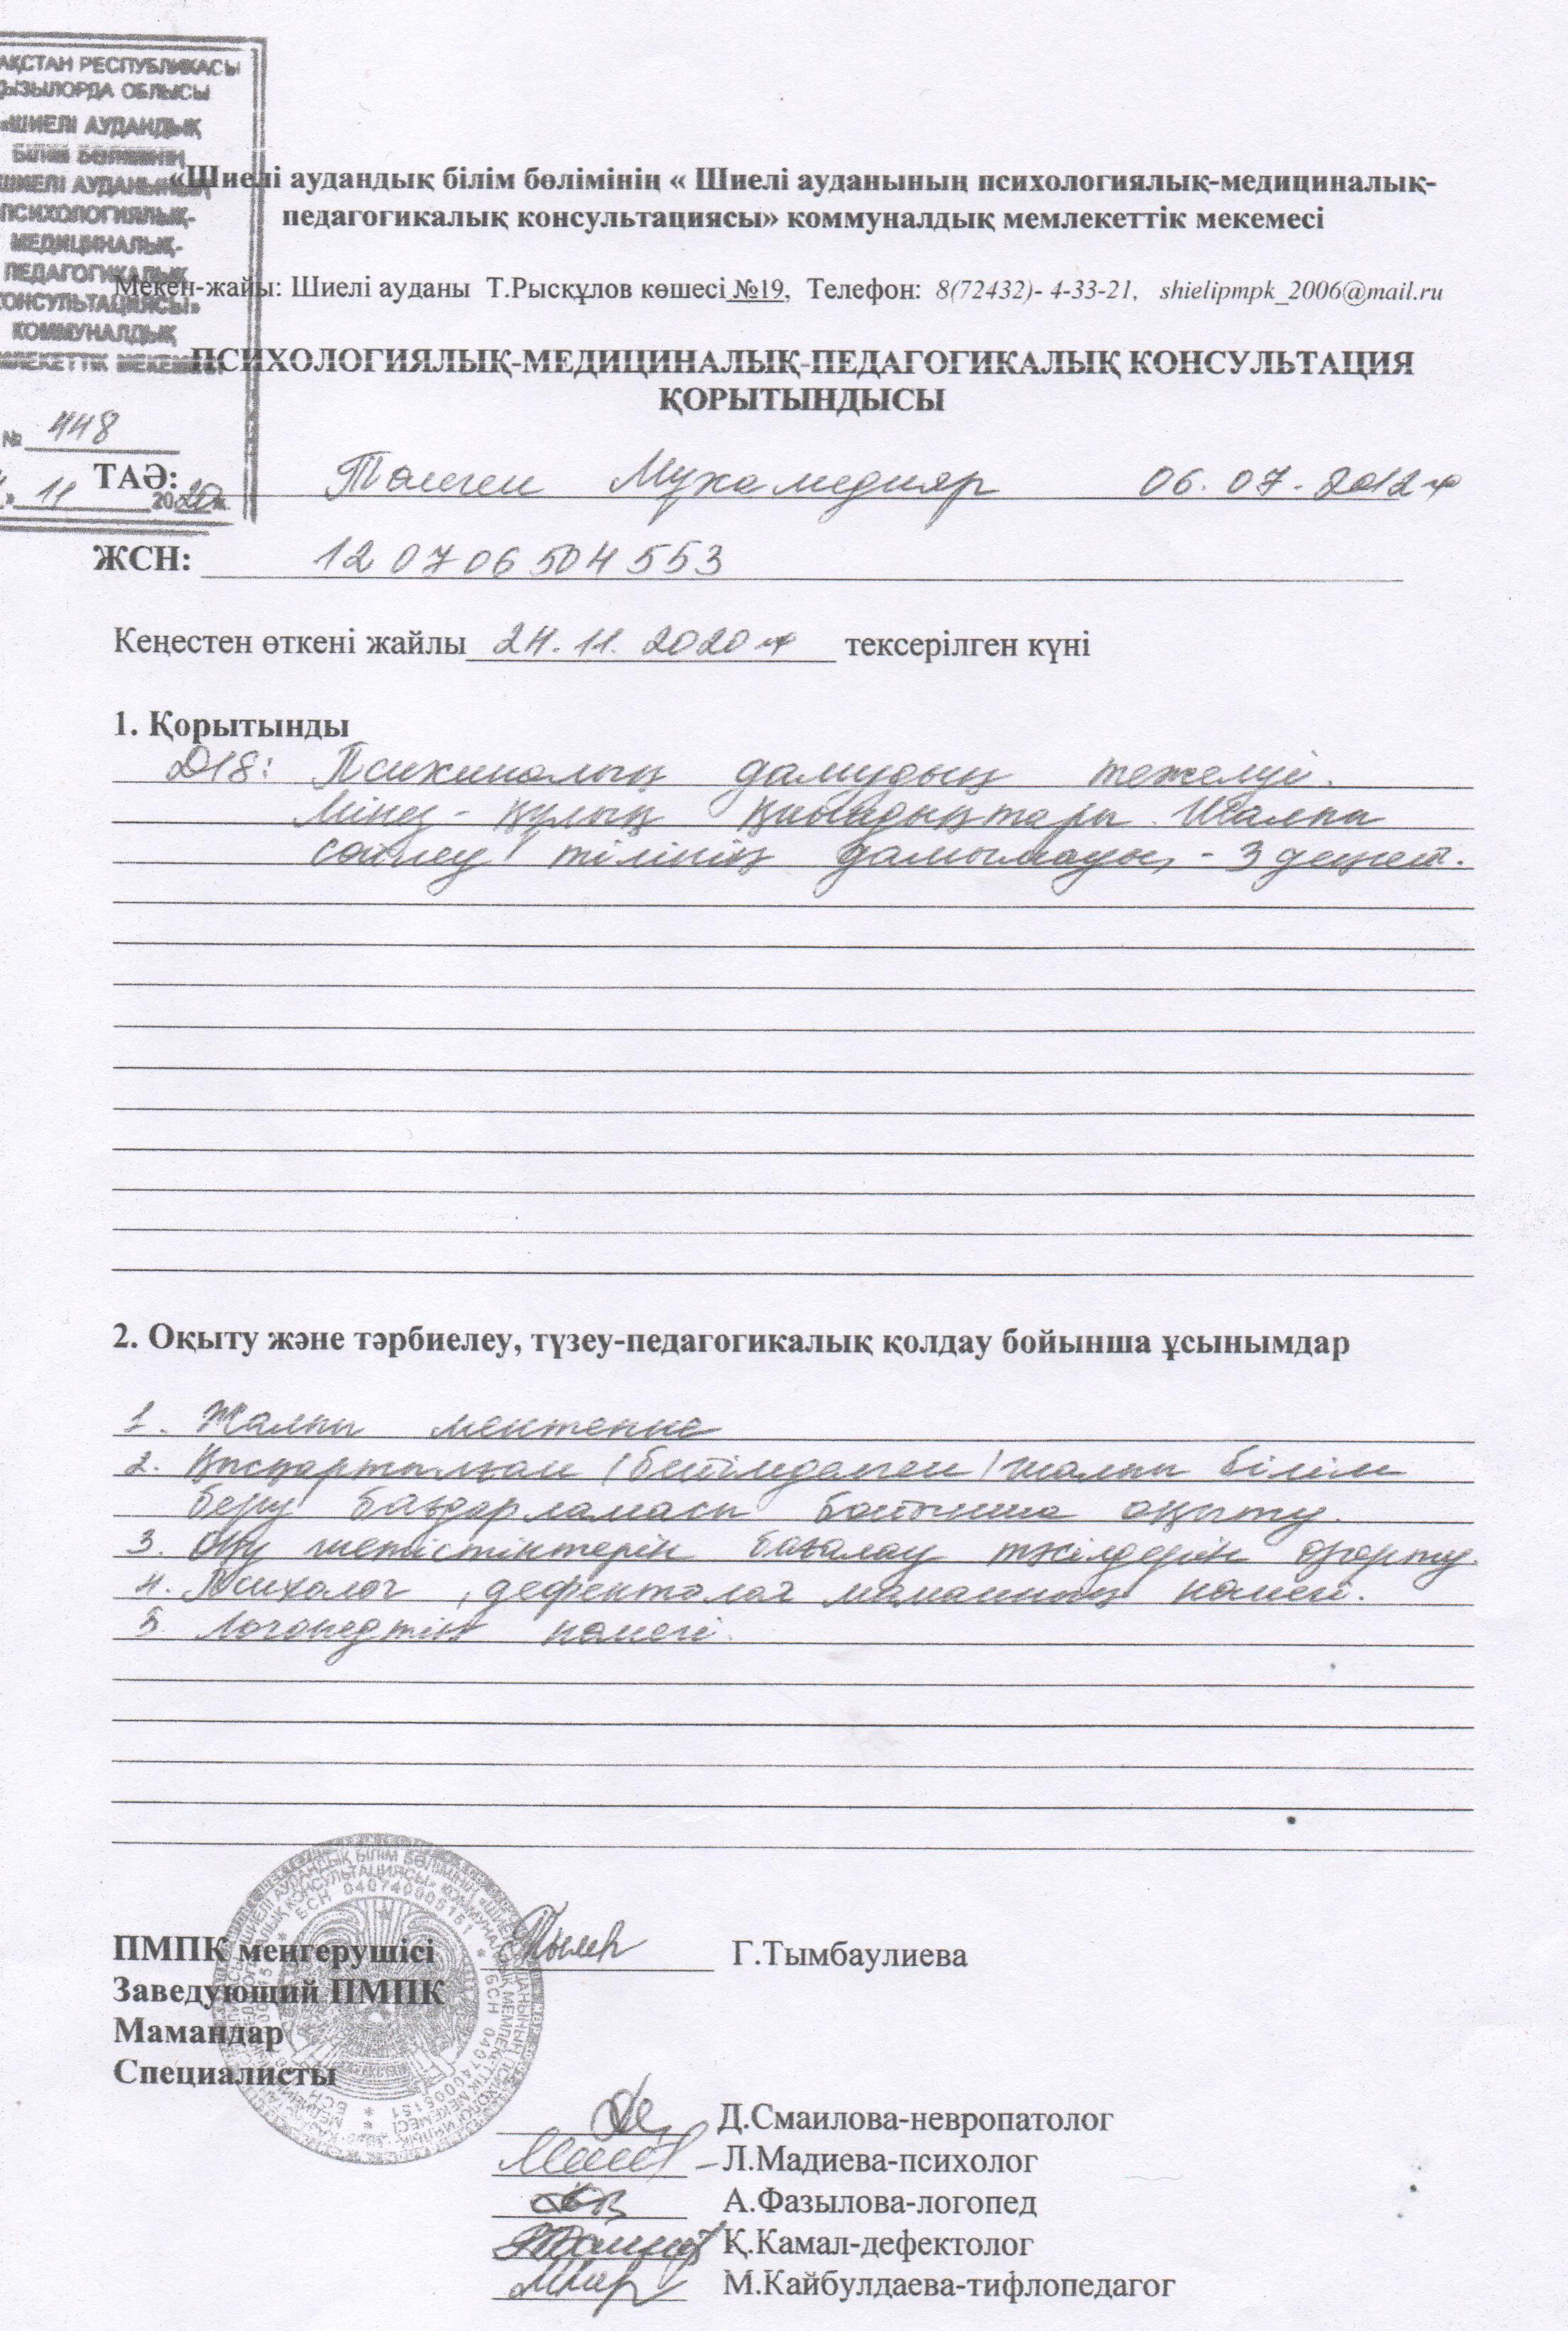 АҚСТАН РЕСПУБЛИКАСЫ
ҚЫЗЫЛОРДА ОБЛЫСЫ
«ШИЕЛІ АУДАНДЫҚ
БІЛІМ БӨЛІМІНІҢ
ШИЕЛІ АУДАНЫНЫҢ
ПСИХОЛОГИЯЛЫҚ-
МЕДИЦИНАЛЫҚ-
ПЕДАГОГИКАЛЫҚ
КОНСУЛЬТАЦИЯСЫ»
КОММУНАЛДЫҚ
МЛЕКЕТТІК МЕКЕМЕСІ
№ 448
» 11 2020ж.
«Шиелі аудандық білім бөлімінің « Шиелі ауданының психологиялық-медициналық-
педагогикалық консультациясы» коммуналдық мемлекеттік мекемесі
Мекен-жайы: Шиелі ауданы Т.Рысқұлов көшесі №19, Телефон: 8(72432)- 4-33-21, shielipmpk_2006@mail.ru
ПСИХОЛОГИЯЛЫҚ-МЕДИЦИНАЛЫҚ-ПЕДАГОГИКАЛЫҚ КОНСУЛЬТАЦИЯ
ҚОРЫТЫНДЫСЫ
ТАӘ: Мухамедияр 06.07.2012ж
ЖСН: 120706504553
Кеңестен өткені жайлы 24.11.2020ж тексерілген күні
1. Қорытынды
Психикалық дамудың тежелуі.
Мінез-құлық қиындықтары. Жалпы
сөйлеу тілінің дамымауы, - 3 деңгей.
2. Оқыту және тәрбиелеу, түзеу-педагогикалық қолдау бойынша ұсынымдар
1. Жалпы мектепке
2. Қысқартылған (бейімделген) жалпы білім
беру бағдарламасы бойынша оқыту.
3. Оқу жетістіктерін бағалау тәсілдерін өзгерту.
4. Психолог, дефектолог маманның көмегі.
5. Логопедтің көмегі.
ПМПК меңгерушісі Г.Тымбаулиева
Заведующий ПМПК
Мамандар
Специалисты
Д.Смаилова-невропатолог
Л.Мадиева-психолог
А.Фазылова-логопед
Қ.Камал-дефектолог
М.Кайбулдаева-тифлопедагог